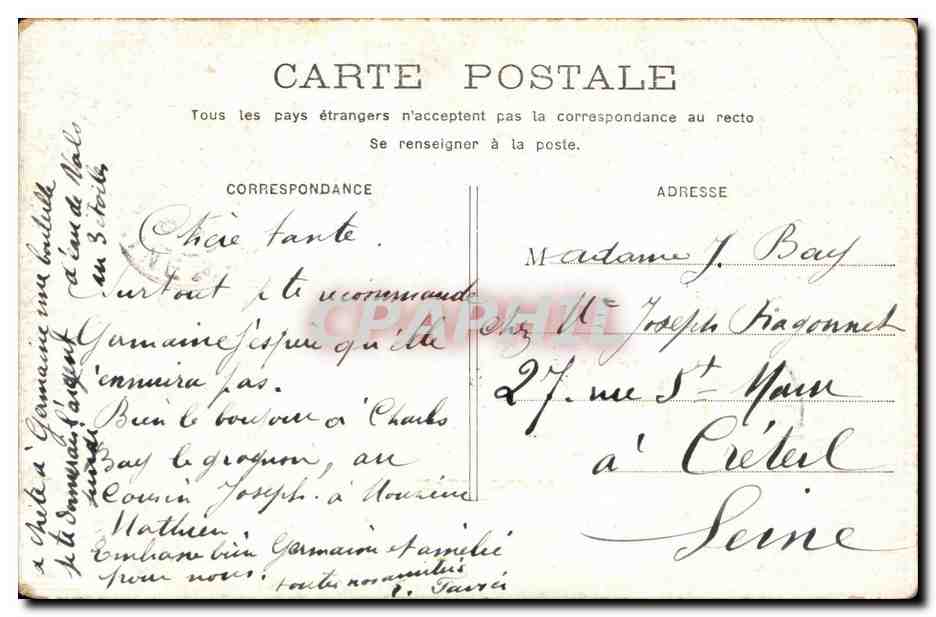 CARTE POSTALE
Tous les pays étrangers n'acceptent pas la correspondance au recto
Se renseigner à la poste.
CORRESPONDANCE
Chère tante.
Surtout j te recommande
Germaine J'espère qu'elle
s'ennuira pas.
Bien le bonjour à Charles
Bay le grognon, au
Cousin Joseph. à Monsieur
Mathieu.
Embrasse bien Germaine et amélie
pour nous.
toutes nos amitiés
achète à Germaine une bouteille
d'eau de Vals
au 3 étoiles
je te donnerai l'argent
lundi
ADRESSE
Madame J. Bay
Chez Mr Joseph Fiagonnet
27. rue St Maur
à Créteil
Seine
CPAPHIL